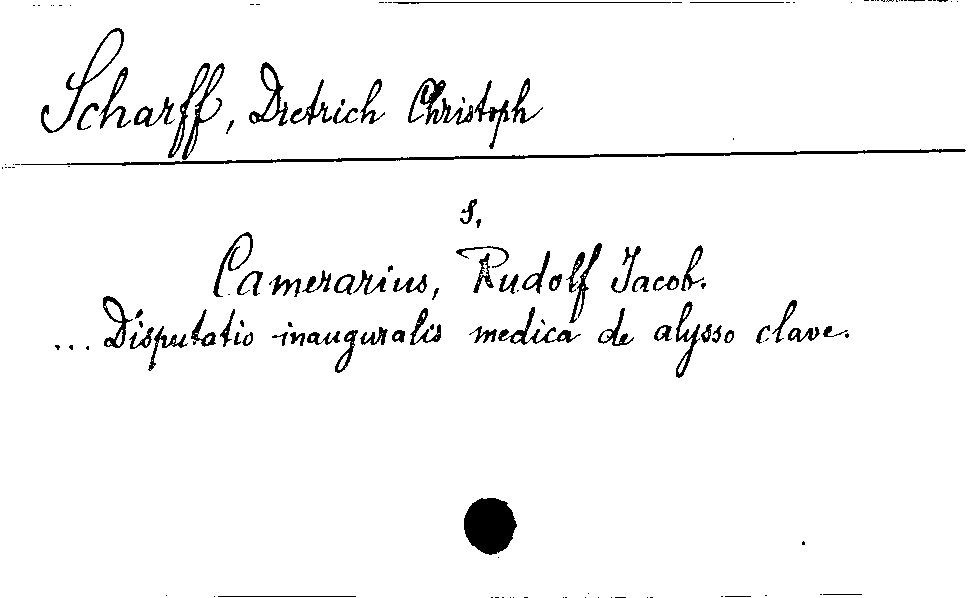 Scharff, Dietrich Christoph
s.
Camerarius, Rudolf Jacob.
... Disputatio inauguralis medica de alysso clave.